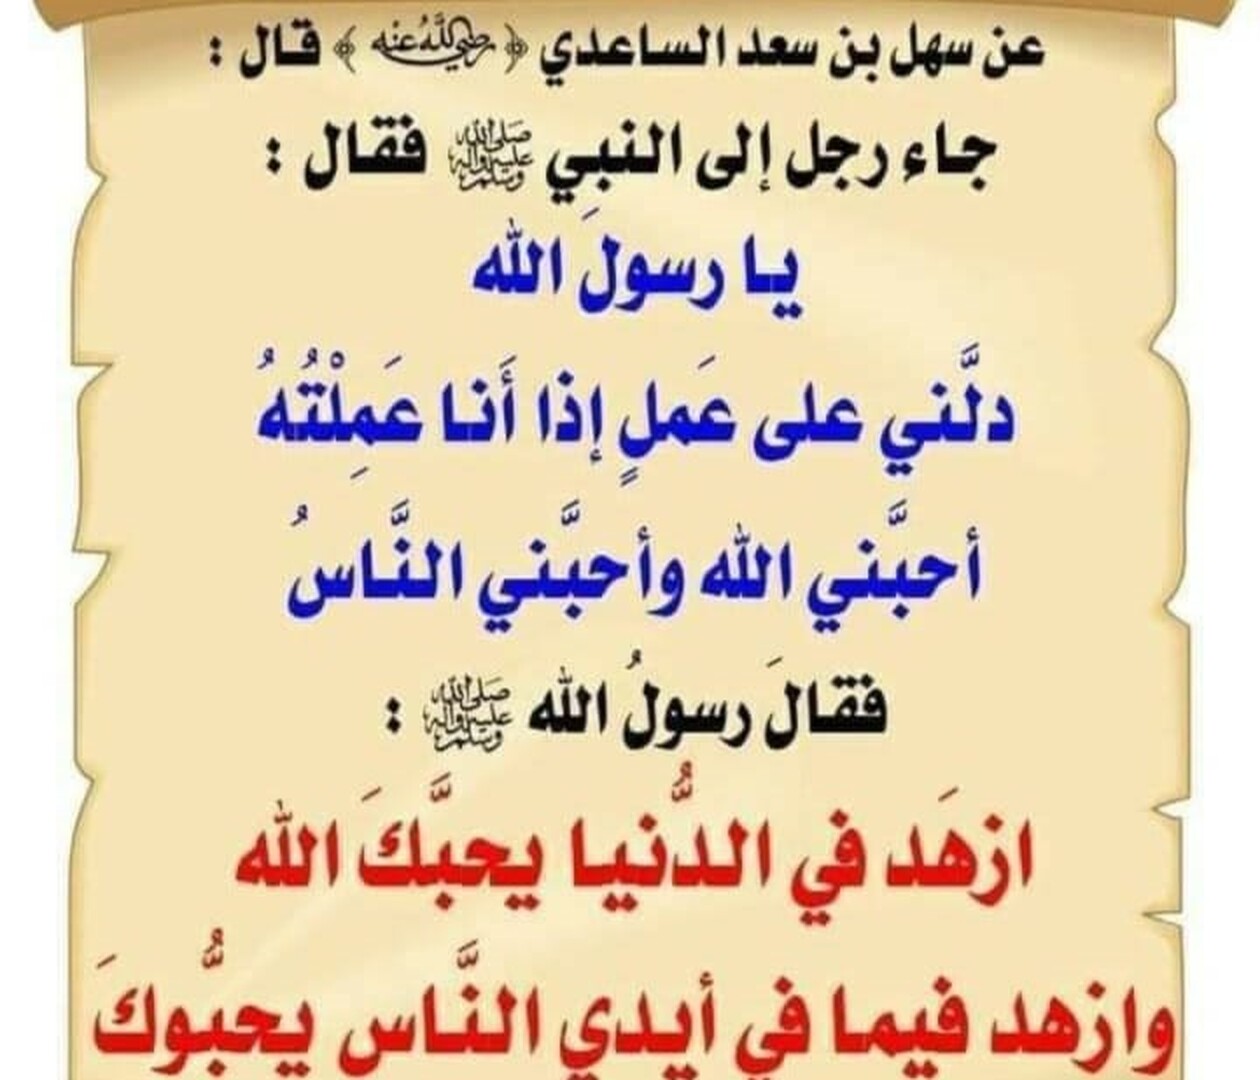 عن سهل بن سعد الساعدي ﴿ رضي الله عنه ﴾ قال :
جاء رجل إلى النبي ﷺ فقال :
يا رسولَ الله
دلَّني على عَملٍ إذا أَنا عَمِلْتُهُ
أحبَّني الله وأحبَّني النَّاسُ
فقالَ رسولُ الله ﷺ :
ازهَد في الدُّنيا يحبَّكَ الله
وازهد فيما في أيدي النَّاس يحبُّوكَ